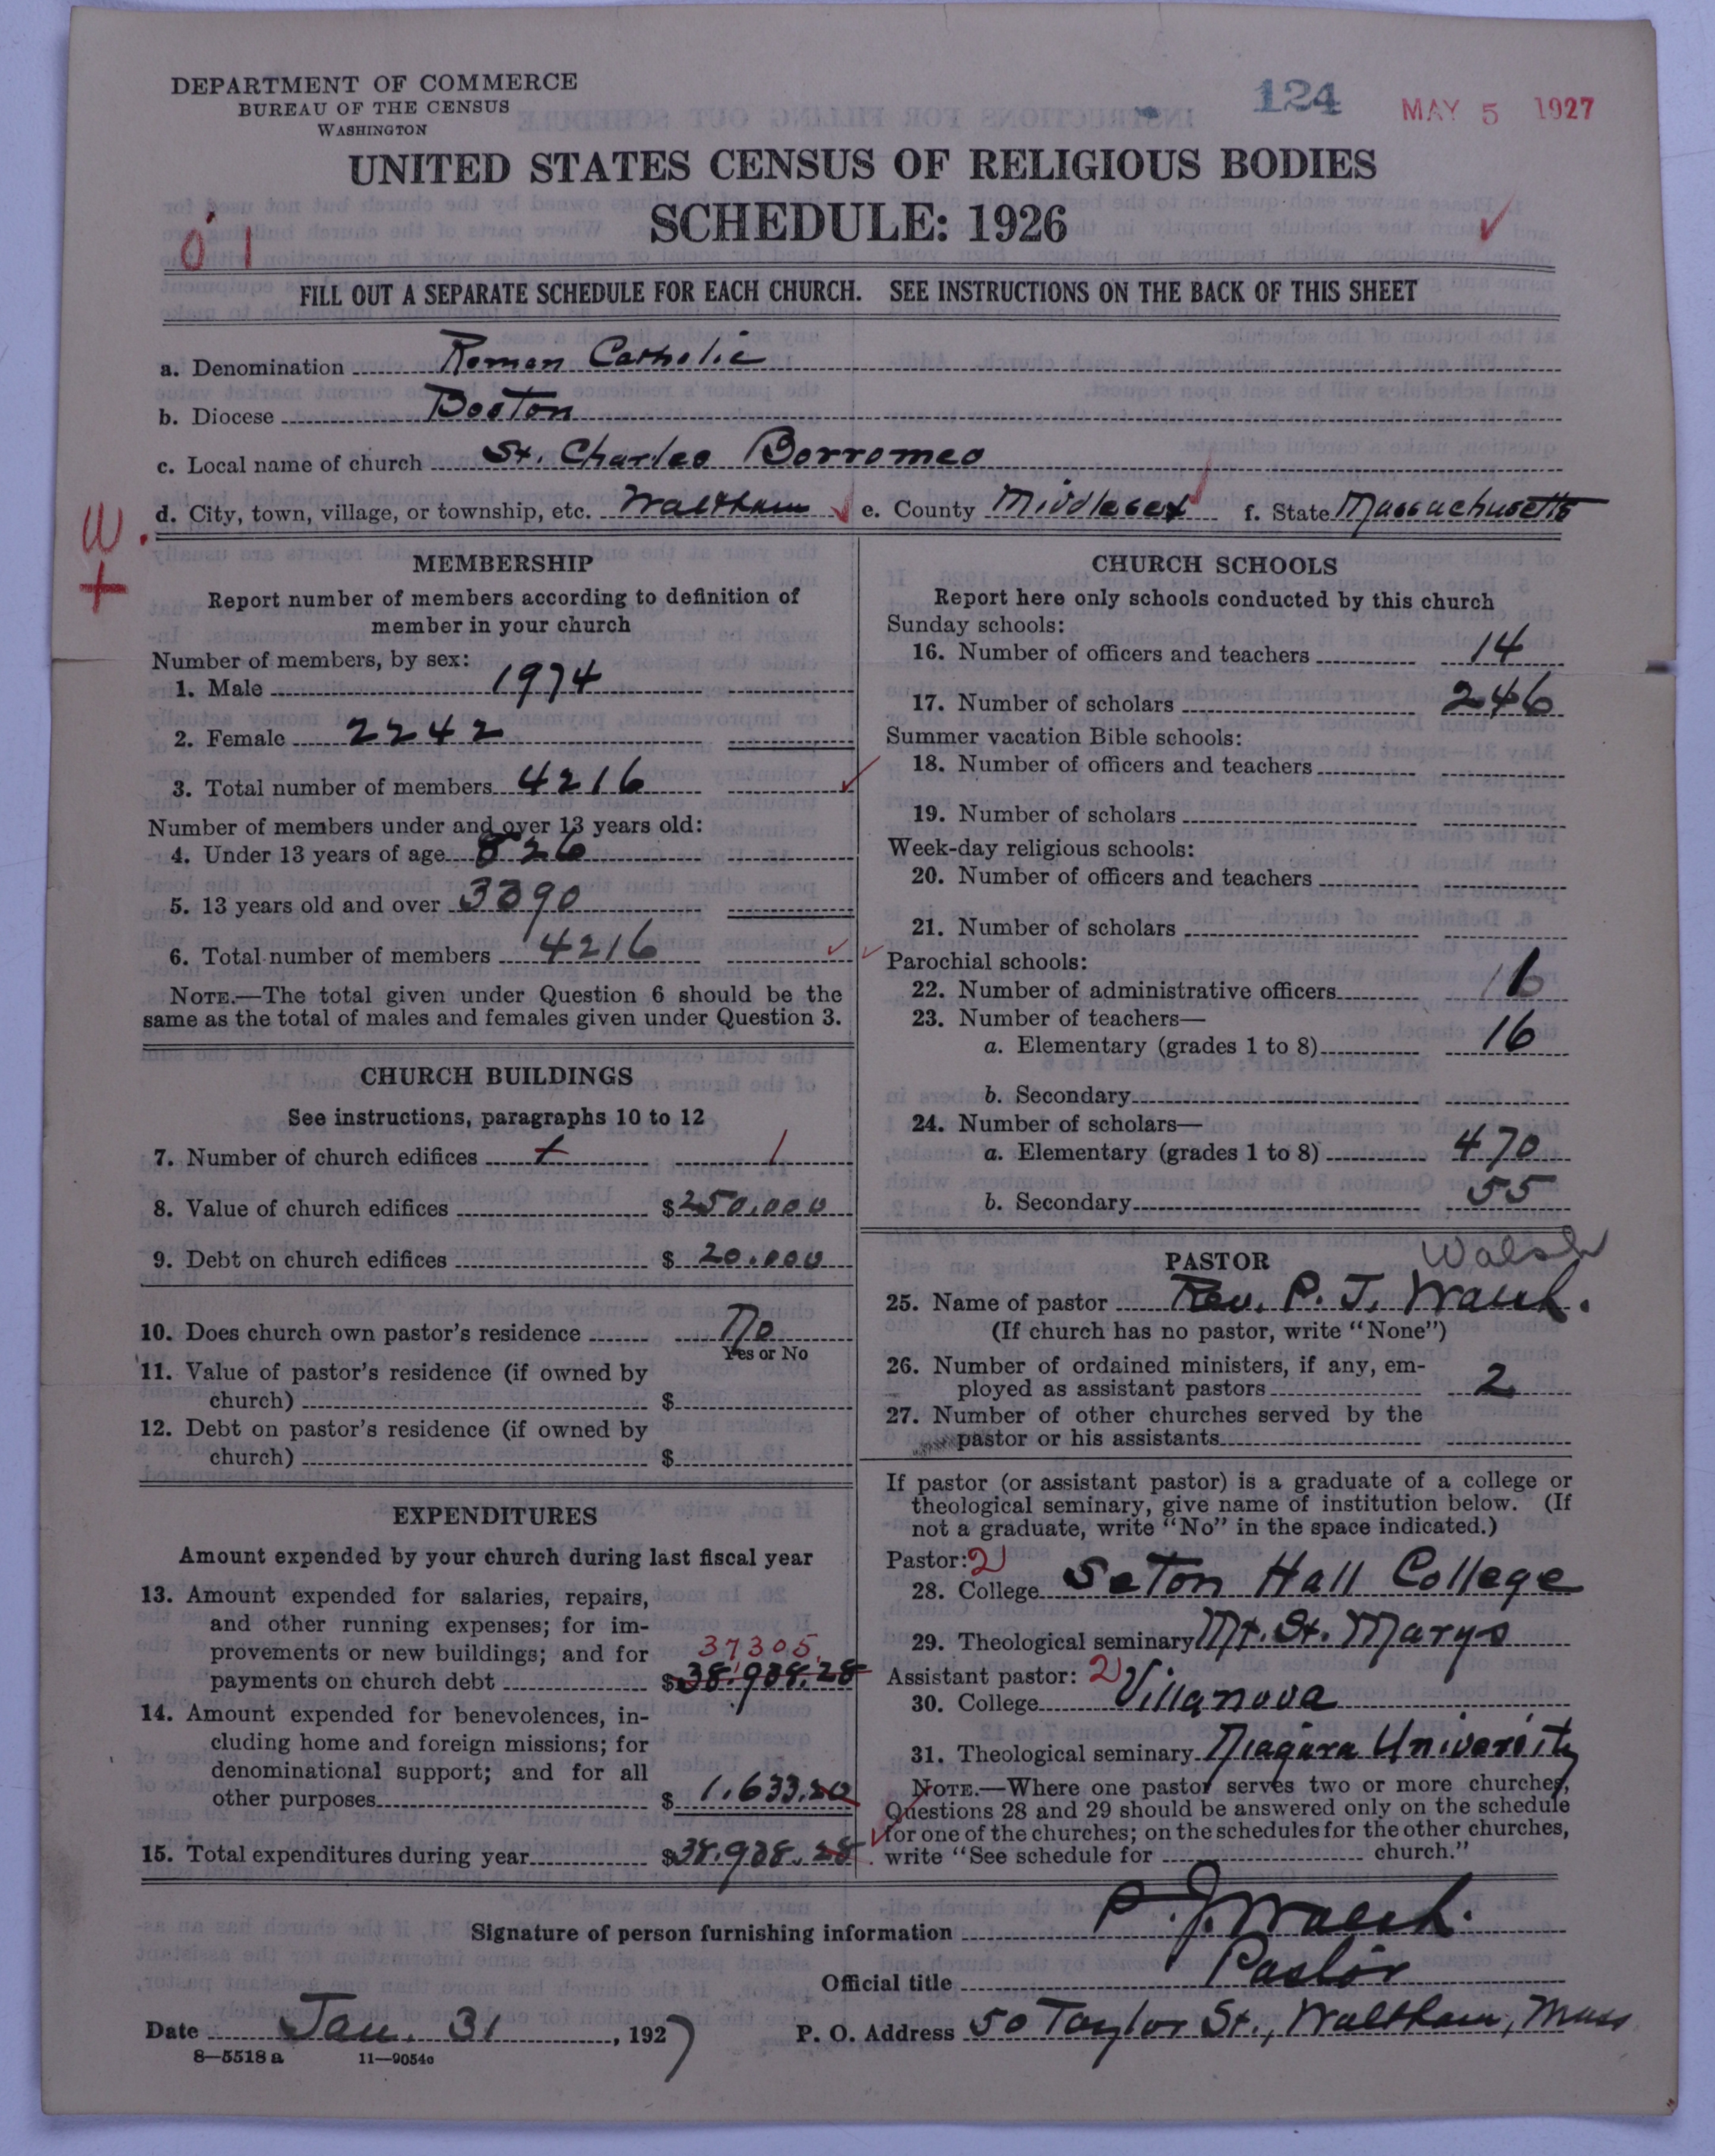 DEPARTMENT OF COMMERCE
BUREAU OF THE CENSUS
WASHINGTON
124
MAY 5 1927
UNITED STATES CENSUS OF RELIGIOUS BODIES
SCHEDULE: 1926
0 1
FILL OUT A SEPARATE SCHEDULE FOR EACH CHURCH. SEE INSTRUCTIONS ON THE BACK OF THIS SHEET
a. Denomination Roman Catholic
b. Diocese Boston
c. Local name of church St. Charles Borromeo
d. City, town, village, or township, etc. Waltham e. County Middlesex f. State Massachusetts
W.
+
MEMBERSHIP
Report number of members according to definition of
member in your church
Number of members, by sex:
1. Male 1974
2. Female 2242
3. Total number of members 4216
Number of members under and over 13 years old:
4. Under 13 years of age 826
5. 13 years old and over 3390
6. Total number of members 4216
NOTE.—The total given under Question 6 should be the
same as the total of males and females given under Question 3.
CHURCH BUILDINGS
See instructions, paragraphs 10 to 12
7. Number of church edifices 1 1
8. Value of church edifices $ 250,000
9. Debt on church edifices $ 20,000
10. Does church own pastor's residence No
Yes or No
11. Value of pastor's residence (if owned by
church) $
12. Debt on pastor's residence (if owned by
church) $
EXPENDITURES
Amount expended by your church during last fiscal year
13. Amount expended for salaries, repairs,
and other running expenses; for im-
provements or new buildings; and for 37305.
payments on church debt $ 38,908.28
14. Amount expended for benevolences, in-
cluding home and foreign missions; for
denominational support; and for all
other purposes $ 1,633.20
15. Total expenditures during year $ 38,938.28
CHURCH SCHOOLS
Report here only schools conducted by this church
Sunday schools:
16. Number of officers and teachers 14
17. Number of scholars 246
Summer vacation Bible schools:
18. Number of officers and teachers
19. Number of scholars
Week-day religious schools:
20. Number of officers and teachers
21. Number of scholars
Parochial schools:
22. Number of administrative officers
23. Number of teachers—
a. Elementary (grades 1 to 8) 16
b. Secondary
24. Number of scholars—
a. Elementary (grades 1 to 8) 470
b. Secondary 55
PASTOR Walsh
25. Name of pastor Rev. P. J. Walsh.
(If church has no pastor, write "None")
26. Number of ordained ministers, if any, em-
ployed as assistant pastors 2
27. Number of other churches served by the
pastor or his assistants
If pastor (or assistant pastor) is a graduate of a college or
theological seminary, give name of institution below. (If
not a graduate, write "No" in the space indicated.)
Pastor: 2
28. College Seton Hall College
29. Theological seminary Mt. St. Marys
Assistant pastor: 2
30. College Villanova
31. Theological seminary Niagara University
NOTE.—Where one pastor serves two or more churches,
Questions 28 and 29 should be answered only on the schedule
for one of the churches; on the schedules for the other churches,
write "See schedule for church."
Signature of person furnishing information P. J. Walsh.
Official title Pastor
Date Jan. 31, 1927 P. O. Address 50 Taylor St., Waltham, Mass
8—5518a 11—9054c